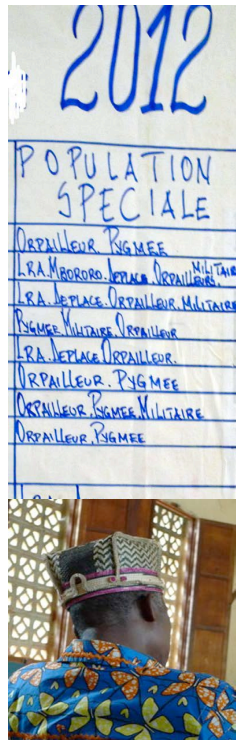 2012
POPULATION
SPECIALE
ORPAILLEUR PYGMEE
LRA. MBORORO. DEPLACE. ORPAILLEURS. MILITAIR
LRA. DEPLACE. ORPAILLEUR. MILITAIRE
PYGMEE. MILITAIRE. ORPAILLEUR
LRA. DEPLACE. ORPAILLEUR.
ORPAILLEUR. PYGMEE
ORPAILLEUR. PYGMEE. MILITAIRE
ORPAILLEUR. PYGMEE